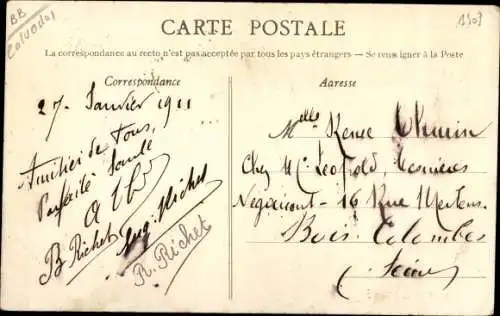 BB
Calvados
1303
CARTE POSTALE
La correspondance au recto n'est pas acceptée par tous les pays étrangers — Se renseigner à la Poste
Correspondance
27 Janvier 1911
Amitiés de Tous,
Parfaite Santé
B Richet
Aug. Richet
R. Richet
Adresse
Melle Renée
Chez Mr Léopold,
Négociant - 16 Rue Mertens
Bois Colombes
(Seine)